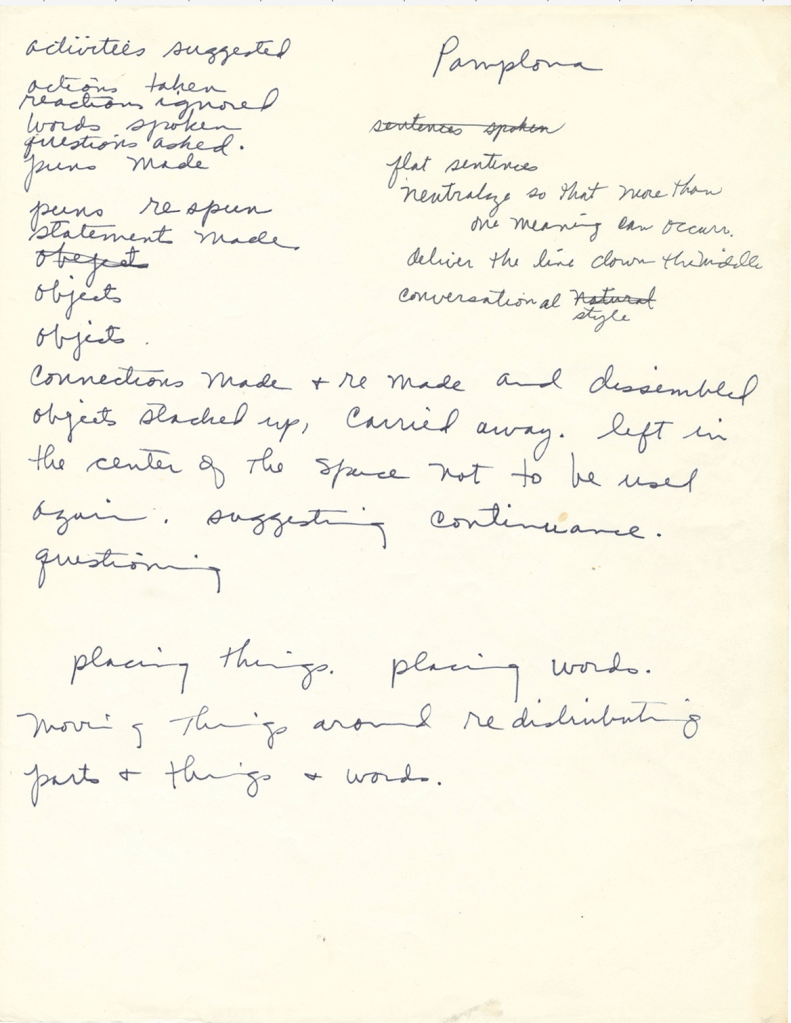 activities suggested
actions taken
reactions ignored
words spoken
questions asked.
puns made
puns respun
statements made
obeject
objects
objects.
Pamplona
sentences spoken
flat sentences
neutralize so that more than
one meaning can occurr.
deliver the line down the middle
conversational natural
style
connections made + re made and dissembled
objects stacked up, carried away. left in
the center of the space not to be used
again. suggesting continuance.
questioning
placing things. placing words.
moving things around redistributing
parts + things + words.